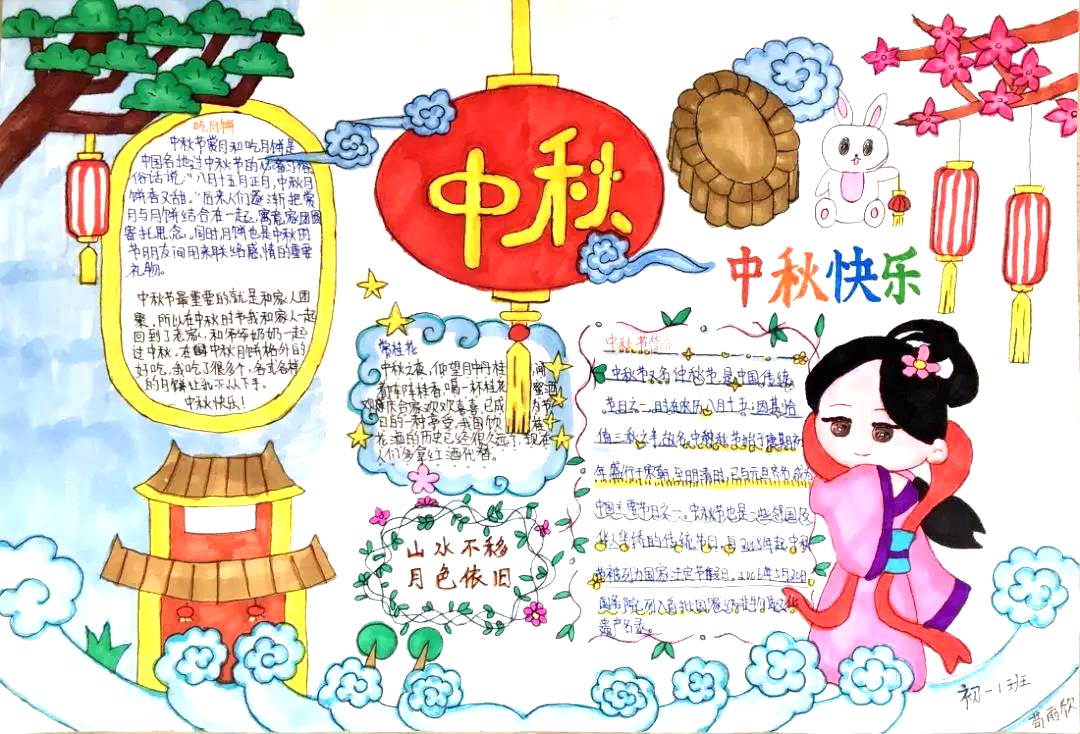 中秋
中秋快乐
吃月饼
中秋节赏月和吃月饼是
中国各地过中秋节的必备习俗
俗话说："八月十五月正月,中秋月
饼香又甜。"后来人们逐渐把赏
月与月饼结合在一起,寓意家团圆
寄托思念。同时月饼也是中秋时
节朋友间用来联络感情的重要
礼物。
中秋节最重要的就是和家人团
聚。所以在中秋时节我和家人一起
回到了老家,和爷爷奶奶一起
过中秋。在中秋月饼格外的
好吃,我吃了很多个,各式各样
的月饼让我下手。
中秋快乐!
赏桂花
中秋之夜,仰望月中丹桂,闻
着阵阵桂香,喝一杯桂花蜜酒
欢庆合家欢欢喜喜,已成为节
日的一种享受。我国饮桂
花酒的历史已经很久远了,现在
人们多拿红酒代替。
山水不移
月色依旧
中秋节简介
中秋节又名仲秋节,是中国传统
节日之一,日在农历八月十五;因其恰
值三秋之半故名,中秋节始于唐朝初
年,盛行于宋朝,至明清时,已与元旦齐名成为
中国主要节日之一。中秋节也是一些邻国及
华人华侨的传统节日,自2008年起中秋
节被列为国家法定节假日。2006年5月20日
国务院列入首批国家级非物质文化
遗产名录。
初一1班
苟雨欣